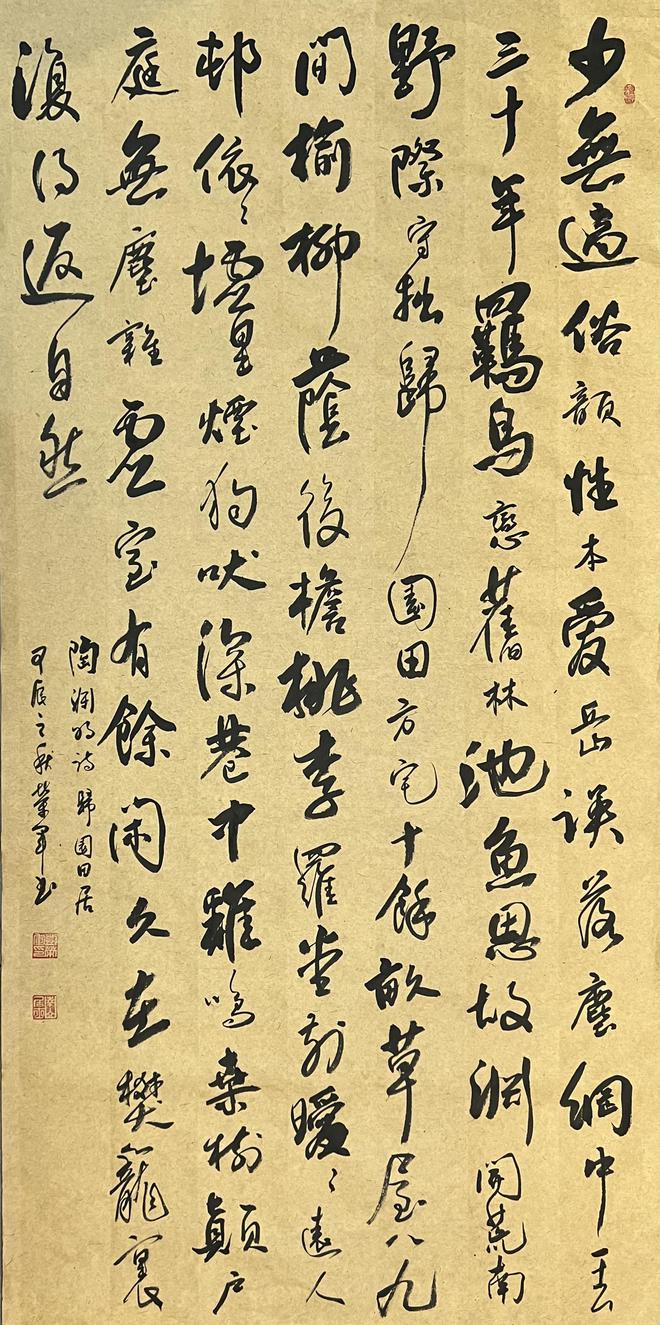 少無適俗韻性本愛丘山誤落塵網中一去
三十年羈鳥戀舊林池魚思故淵開荒南
野際守拙歸園田方宅十餘畝草屋八九
間榆柳蔭後檐桃李羅堂前曖〻遠人
邨依〻墟里煙狗吠深巷中雞鳴桑樹顛戶
庭無塵雜虛室有餘閑久在樊籠裏
復得返自然
陶淵明詩歸園田居
甲辰之秋榮軍書